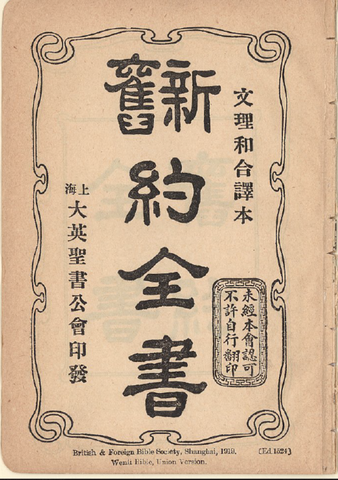 文理和合譯本
新舊約全書
未經本會認可
不許自行翻印
上海大英聖書公會印發
British & Foreign Bible Society, Shanghai, 1919. [Ed. 1524]
Wenli Bible, Union Version.